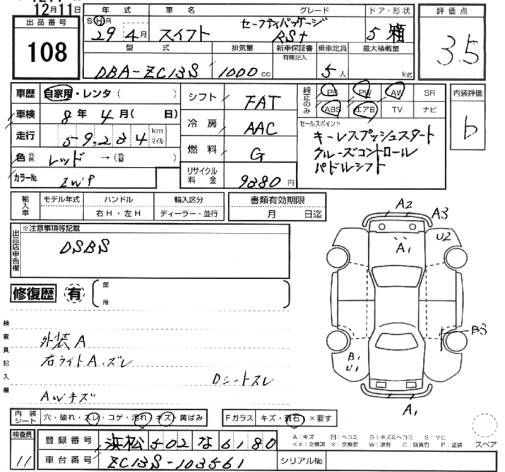 12月11日
出品番号
108
年式 車名 グレード ドア・形状
S H R 29年4月 スイフト セーフティパッケージ RSt 5 箱
型式 排気量 新車保証書 有無記入 乗車定員 最大積載量
DBA-ZC13S 1000 cc 5人 kg
評価点
3.5
車歴 自家用・レンタ( )
車検 8年4月( 日)
走行 59,234 km マイル
色 レッド →( )
カラーNo. ZWP
シフト FAT
冷房 AAC
燃料 G
リサイクル料金 9380円
純正のみ PS PW AW SR
ABS エアB TV ナビ
セールスポイント
キーレスプッシュスタート
クルーズコントロール
パドルシフト
内装評価
b
輸入車 モデル年式 ハンドル 輸入区分
右H・左H ディーラー・並行
書類有効期限
月 日迄
出品店申告欄
※注意事項等記載
DSBS
修復歴 有 箇所
検査員記入欄
外装A
右ライトA.ズレ
Dシートスレ
AWキズ
A2 A3
A1 U2
B3
B1
U1
A1
内装シート 穴・破れ・スレ・コゲ・汚れ・キズ・黄ばみ
Fガラス キズ・飛石・×要す
検査員 11
登録番号 浜松502な6180
車台番号 ZC13S-103561
シリアルNo.
スペア